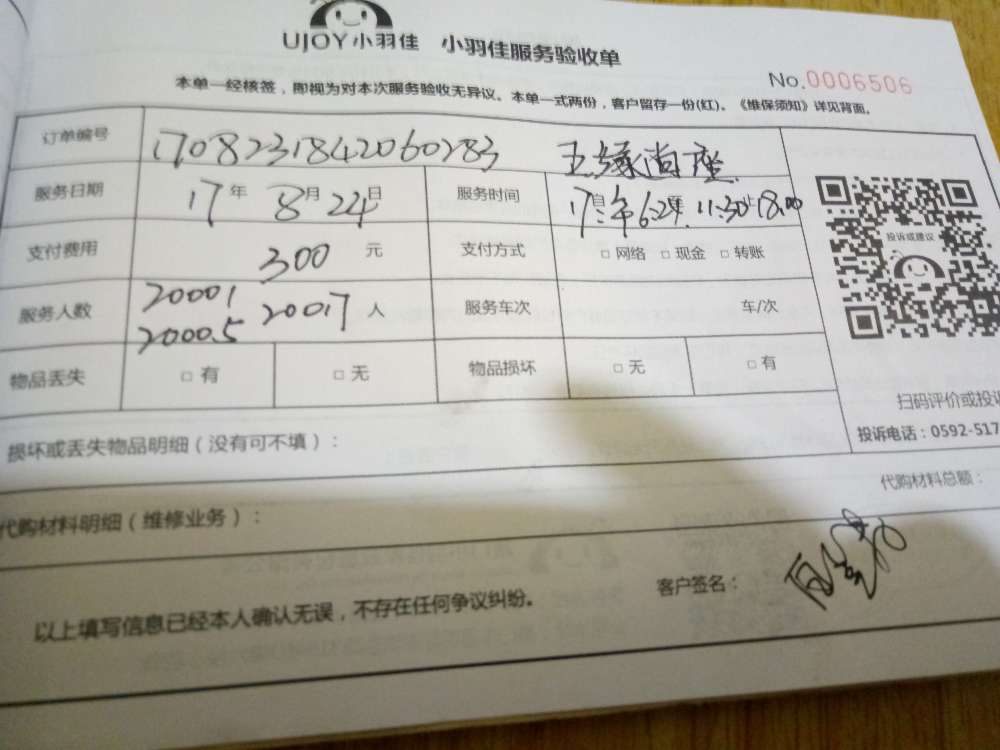 UJOY小羽佳 小羽佳服务验收单
No.0006506
本单一经核签，即视为对本次服务验收无异议。本单一式两份，客户留存一份(红)。《维保须知》详见背面。
订单编号 1708231842060283 五缘尚座
服务日期 17年 8月24日 服务时间 17 11:30 18:00
支付费用 300 元 支付方式 □ 网络 □ 现金 □ 转账
投诉或建议
服务人数 20001 20017 人 服务车次 车/次
20005
物品丢失 □ 有 □ 无 物品损坏 □ 无 □ 有
扫码评价或投诉
损坏或丢失物品明细（没有可不填）：
投诉电话：0592-517
代购材料总额：
代购材料明细（维修业务）：
客户签名：
以上填写信息已经本人确认无误，不存在任何争议纠纷。